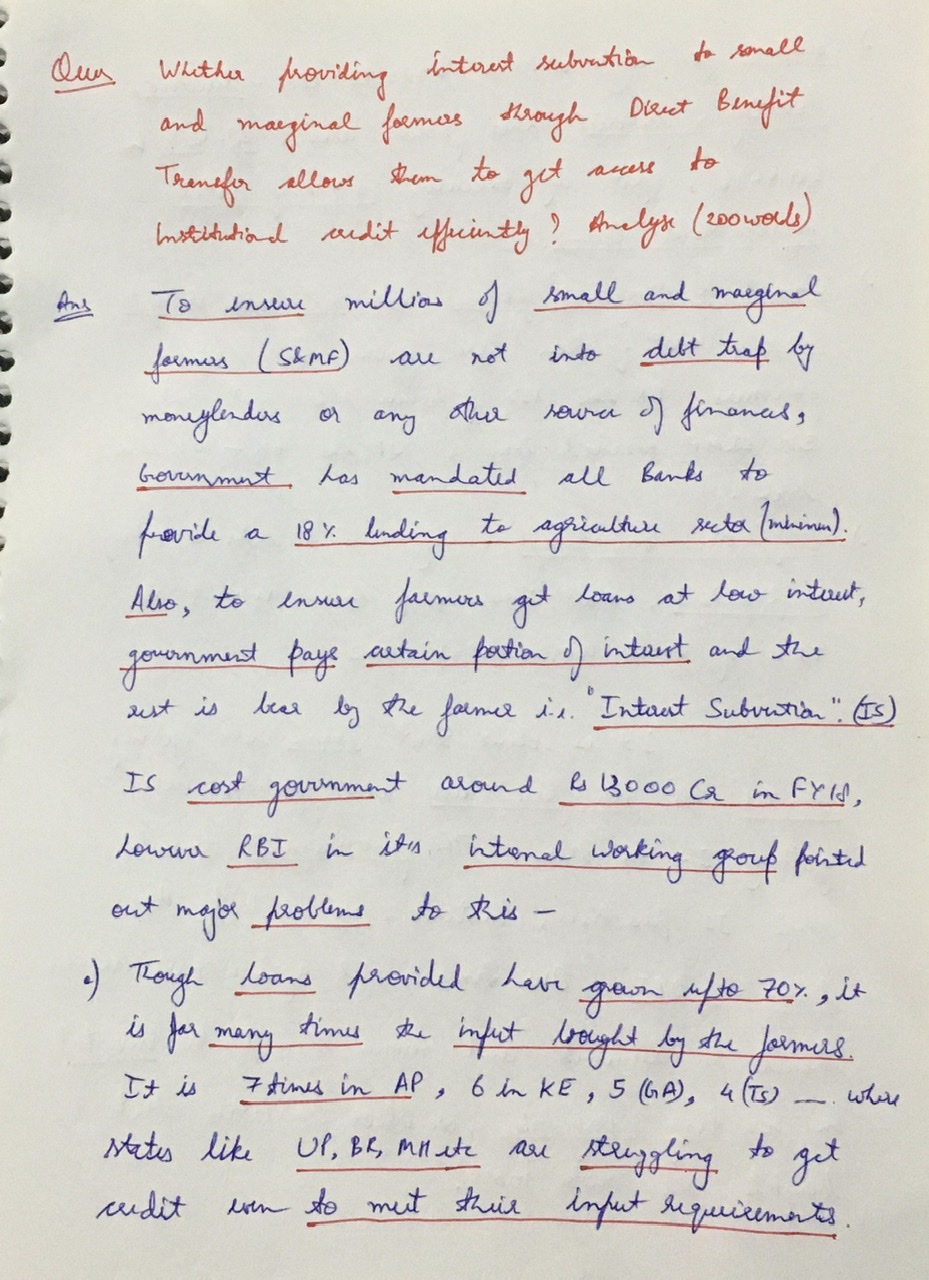 Ques Whether providing interest subvention to small
and marginal farmers through Direct Benefit
Transfer allows them to get access to
Institutional credit efficiently? Analyse (200 words)
Ans To ensure millions of small and marginal
farmers (S&MF) are not into debt trap by
moneylenders or any other source of finances,
Government has mandated all Banks to
provide a 18% lending to agriculture sector (minimum).
Also, to ensure farmers get loans at low interest,
government pays certain portion of interest and the
rest is bear by the farmer i.e. "Interest Subvention". (IS)
IS cost government around Rs 13000 Cr in FY18,
however RBI in it's internal working group pointed
out major problems to this -
•) Though loans provided have grown upto 70%, it
is far many times the input bought by the farmers.
It is 7 times in AP, 6 in KE, 5 (GA), 4 (TS) — where
states like UP, BR, MH etc are struggling to get
credit even to meet their input requirements.